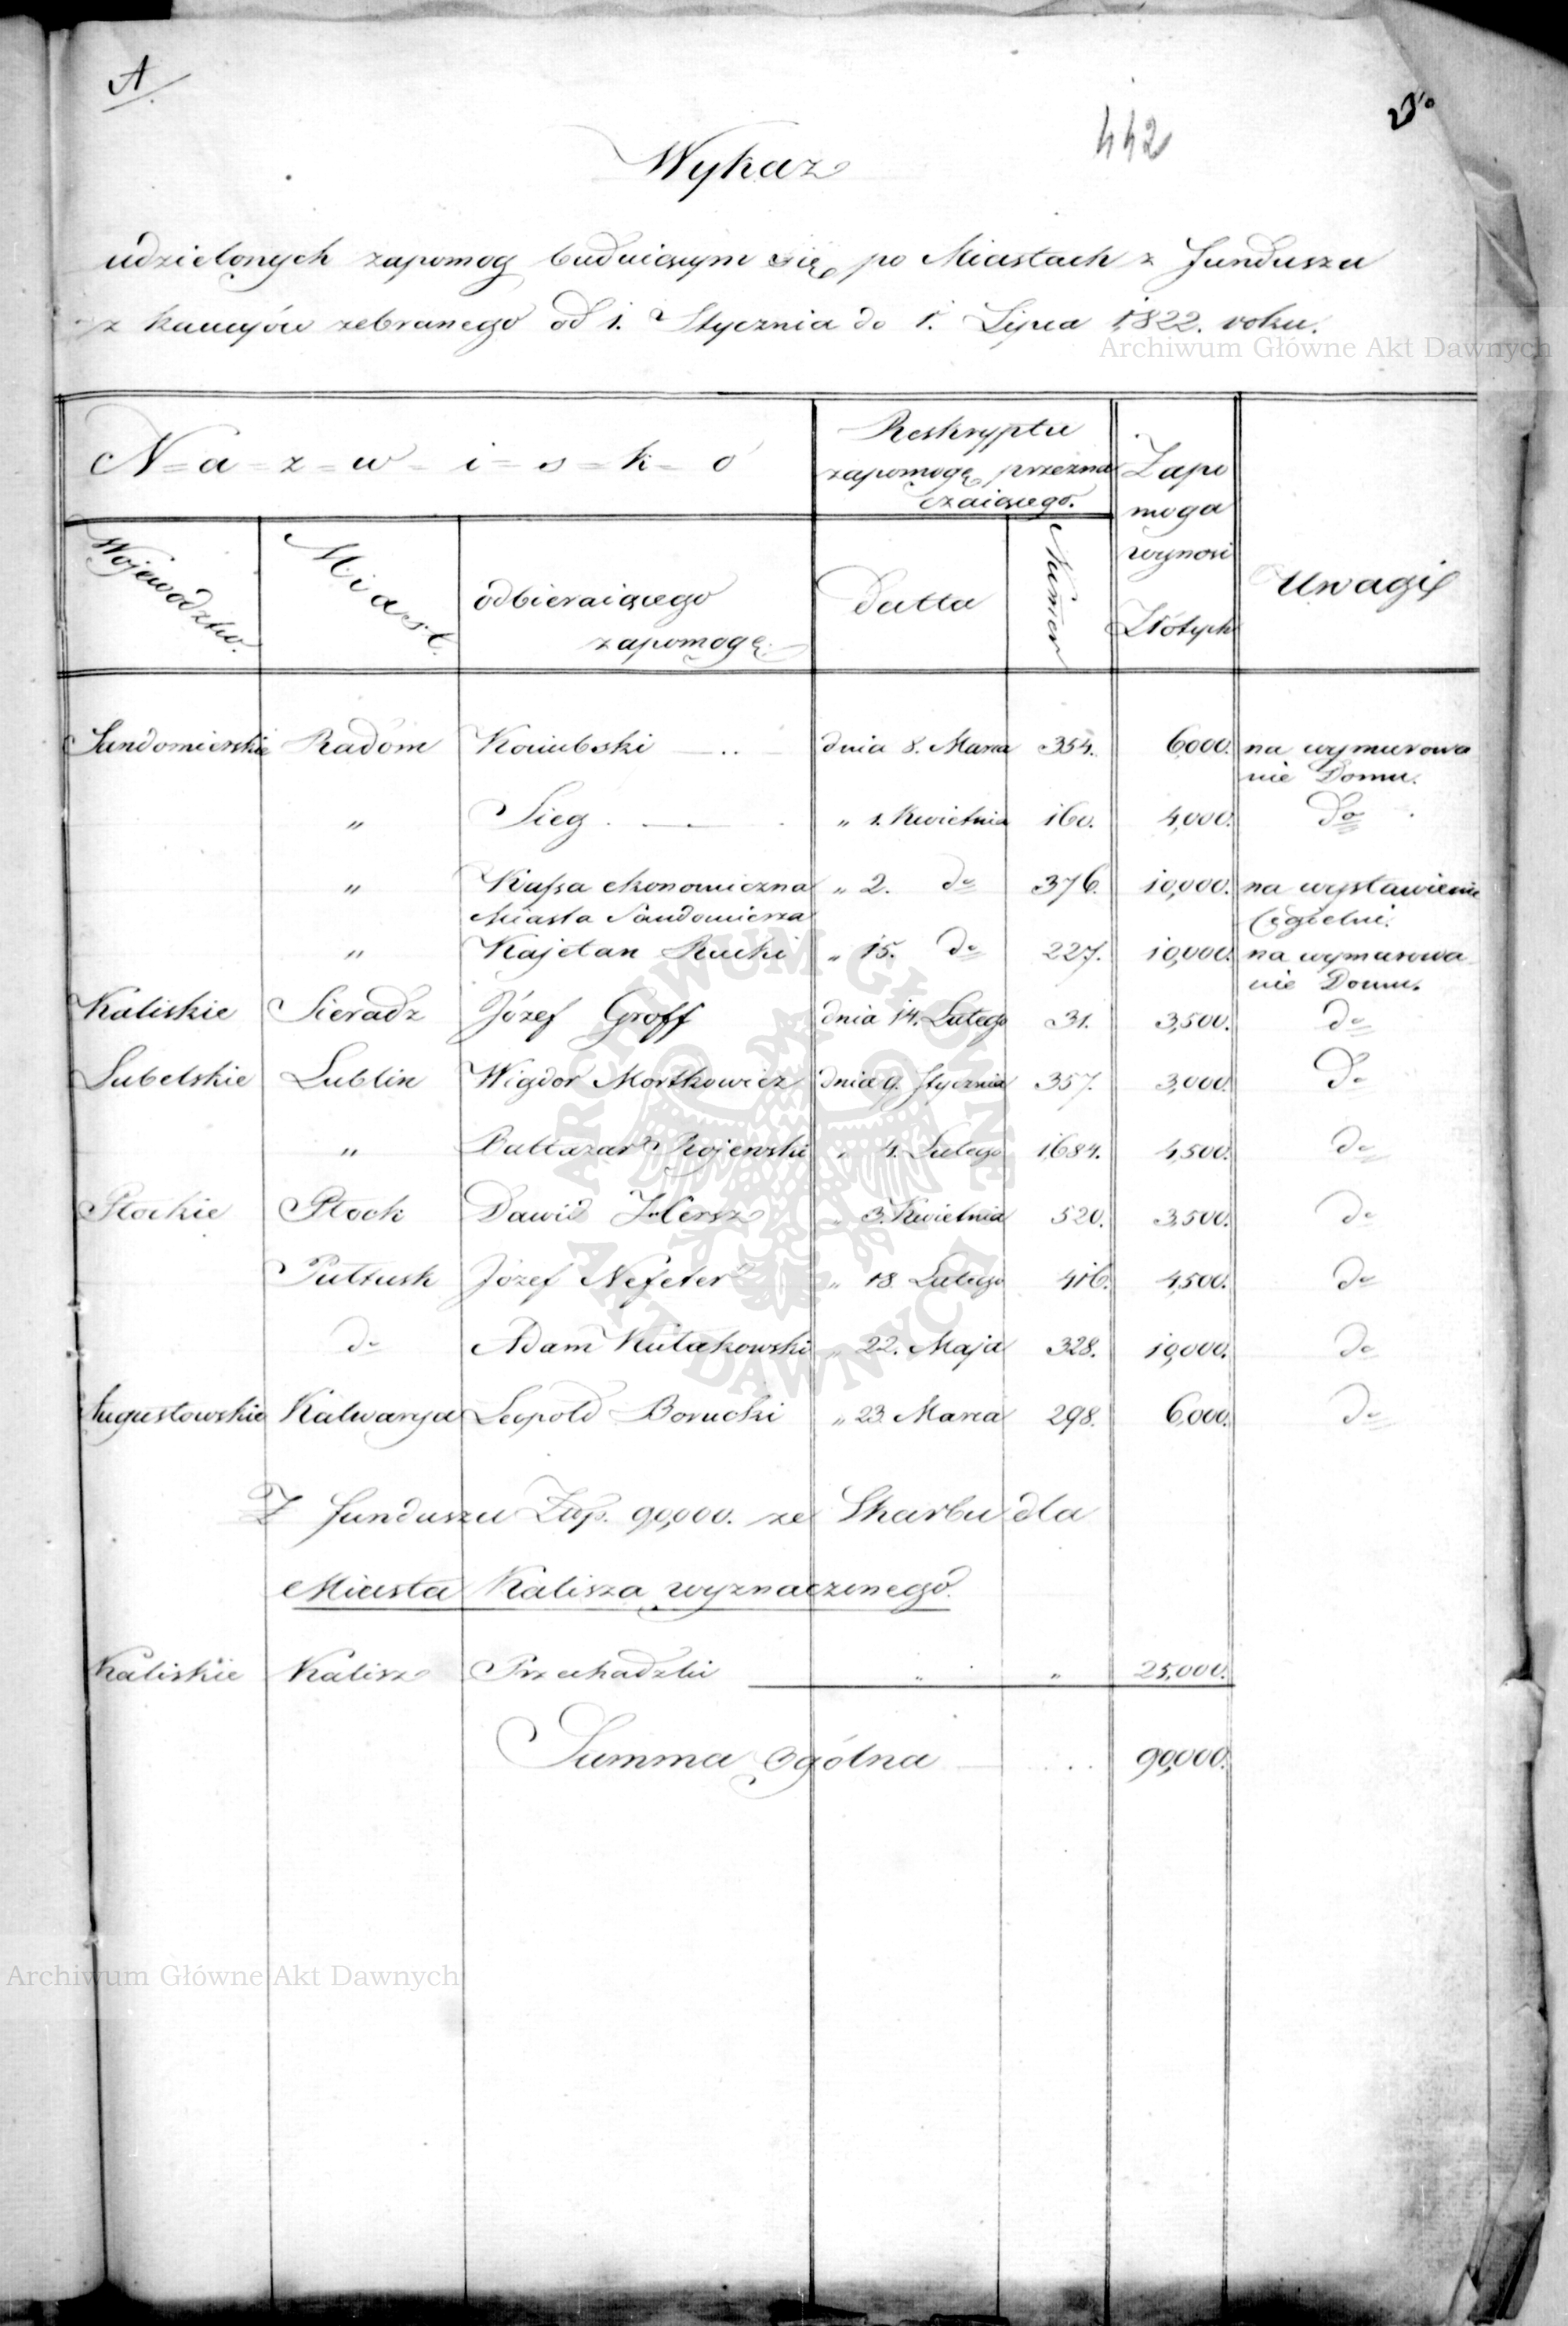 A.
442
Wykaz
udzielonych zapomog buduiącym się po Miastach z Funduszu
z kaucyów zebranego od 1. Stycznia do 1. Lipca 1822. roku.
Archiwum Główne Akt Dawnych
N=a=z=w=i=s=k=o
Reskryptu
zapomogę przezna
czaiącego.
Zapo
moga
wynosi
Złotych
Uwagi
Województwo.
Miast.
odbieraiącego
zapomogę.
Datta
Numer
Sandomierskie Radom Kociubski dnia 8. Marca 354. 6000. na wymurowa
nie Domu.
" Sieg " 1. Kwietnia 160. 4,000. do
" Kassa ekonomiczna " 2. do 376. 10,000. na wystawienie
Miasta Sandomierza Cegielni.
" Kajetan Rucki " 15. do 227. 10,000. na wymurowa
nie Domu.
Kaliskie Sieradz Józef Groff dnia 14. Lutego 31. 3,500. do
Lubelskie Lublin Wigdor Mortkowicz dnia 9. Stycznia 357. 3,000. do
" Baltazar Rojewski " 4. Lutego 1684. 4,500. do
Płockie Płock Dawid Hersz " 3. Kwietnia 520. 3,500. do
Pułtusk Józef Nefeter " 18. Lutego 416. 4,500. do
do Adam Kułakowski " 22. Maja 328. 10,000. do
Augustowskie Kalwarya Leopold Borucki " 23. Marca 298. 6,000. do
Z Funduszu Złp. 90,000. ze Skarbu dla
Miasta Kalisza wyznaczonego.
Kaliskie Kalisz Przechadzki " " 25,000.
Summa ogólna 90,000.
ARCHIWUM GŁÓWNE
AKT DAWNYCH
Archiwum Główne Akt Dawnych